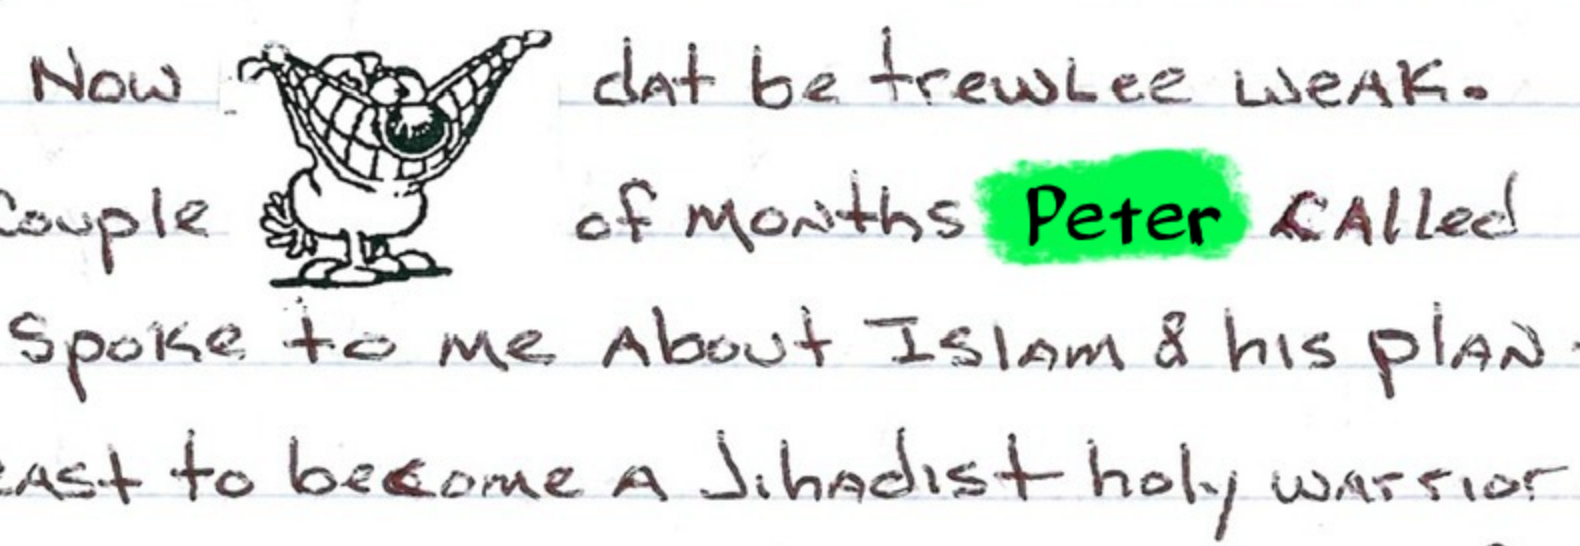 Now dat be trewlee weak.
Couple of months Peter called
Spoke to me about Islam & his plan
east to become a Jihadist holy warrior